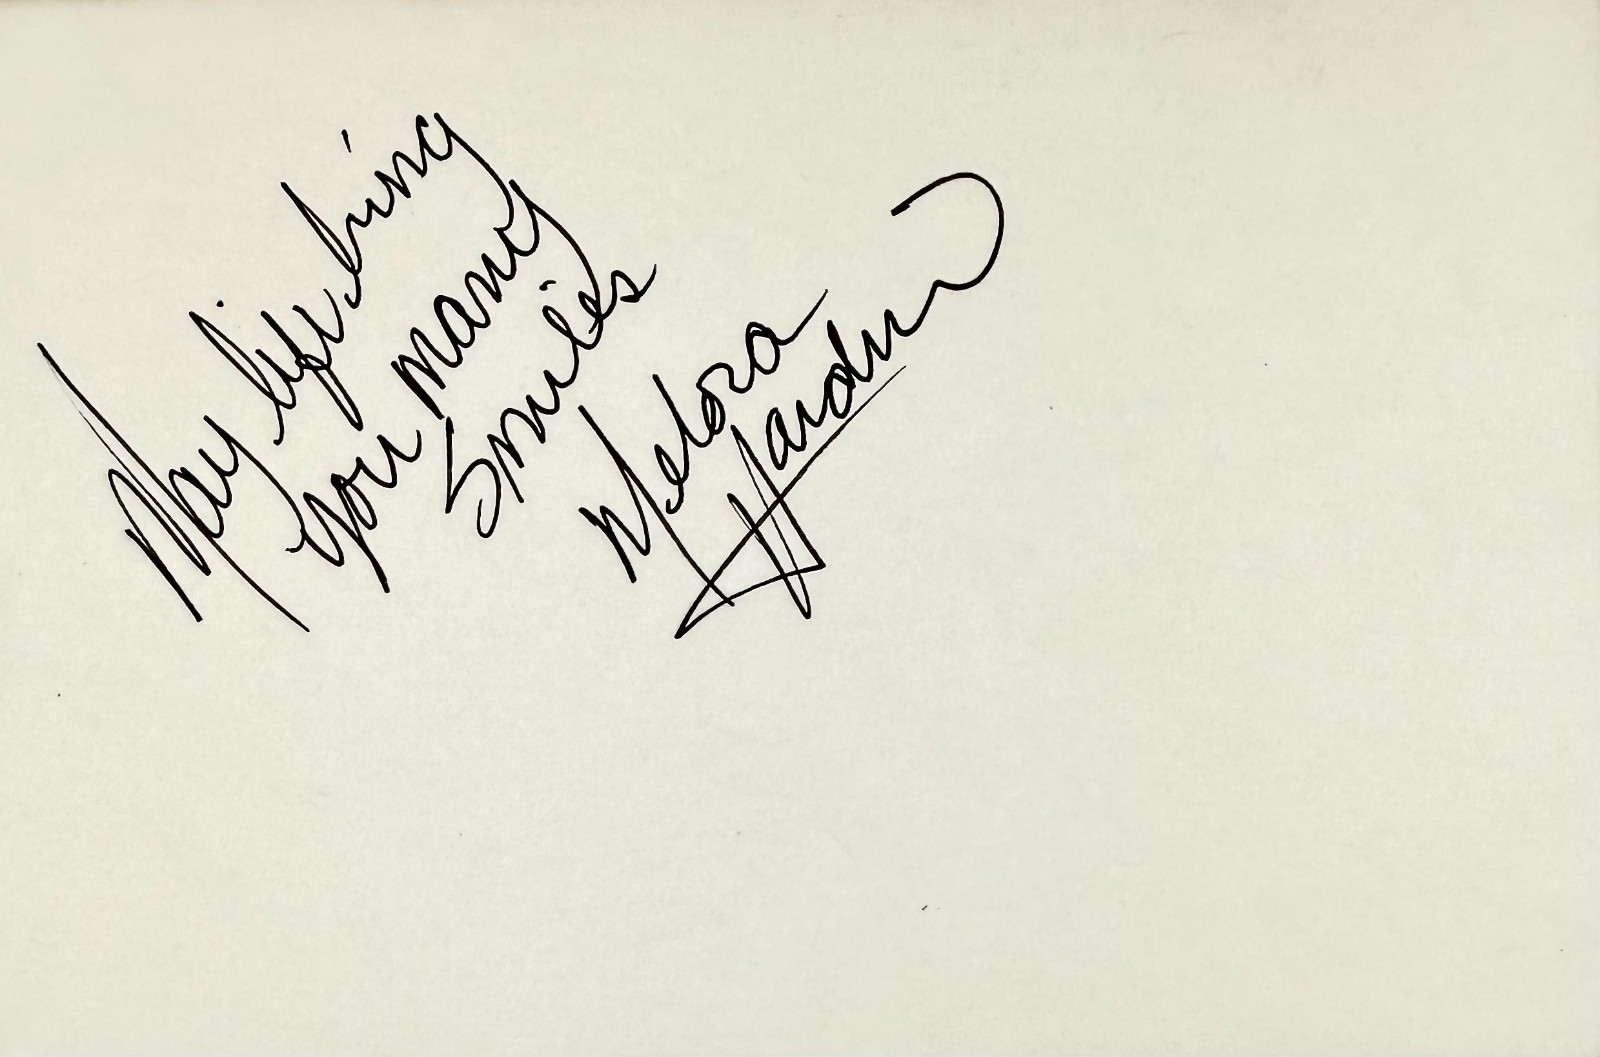 May life bring
you many
Smiles
Melora
Hardin